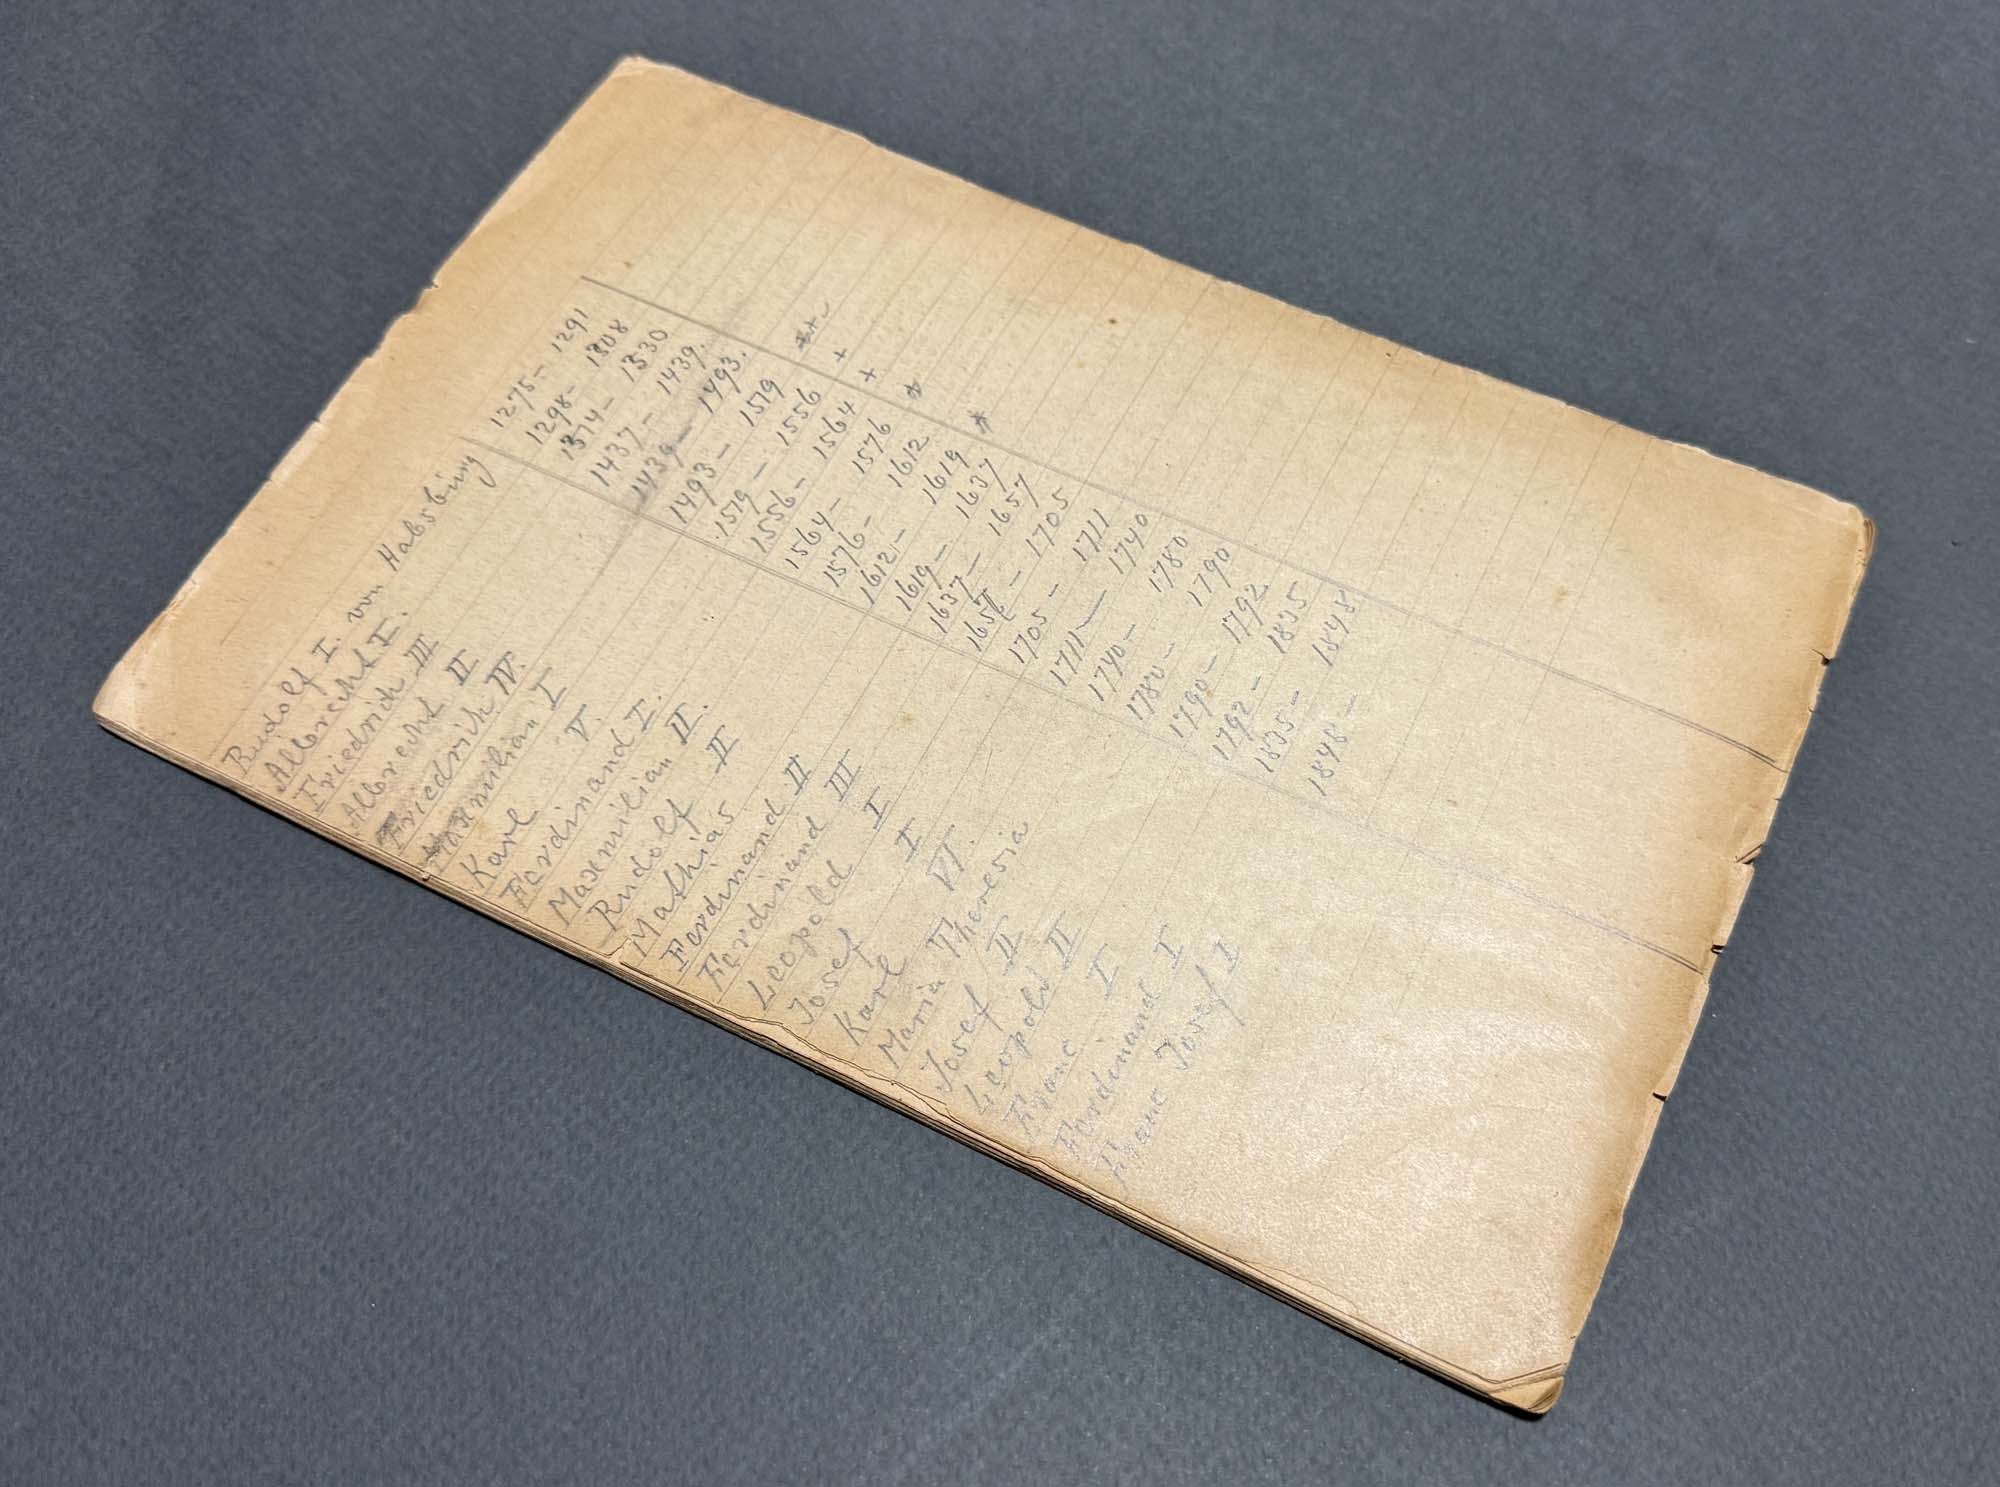 Rudolf I. von Habsburg 1275 - 1291
Albrecht I. 1298 - 1308
Friedrich III 1314 - 1330
Albrecht II 1437 - 1439.
Friedrich IV. 1439 - 1493.
Maxmilian I 1493 - 1519
Karl V. 1519 - 1556 +
Ferdinand I. 1556 - 1564 +
Maxmilian II. 1564 - 1576
Rudolf II 1576 - 1612
Mathias 1612 - 1619
Ferdinand II 1619 - 1637
Ferdinand III 1637 - 1657
Leopold I 1657 - 1705
Josef I 1705 - 1711
Karl VI. 1711 - 1740
Maria Theresia 1740 - 1780
Josef II 1780 - 1790
Leopold II 1790 - 1792
Franc I 1792 - 1835
Ferdinand I 1835 - 1848
Franc Josef I 1848 -